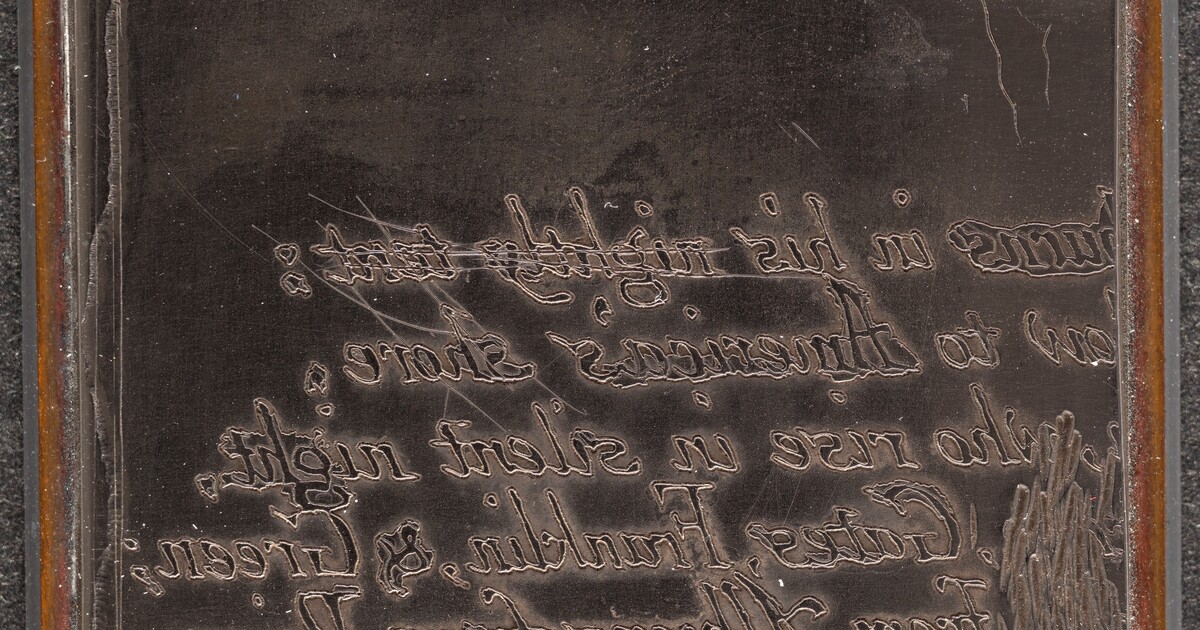 burns in his nightly tent;
low to Americas shore;
who rise in silent night,
Gates, Franklin, & Green;
from